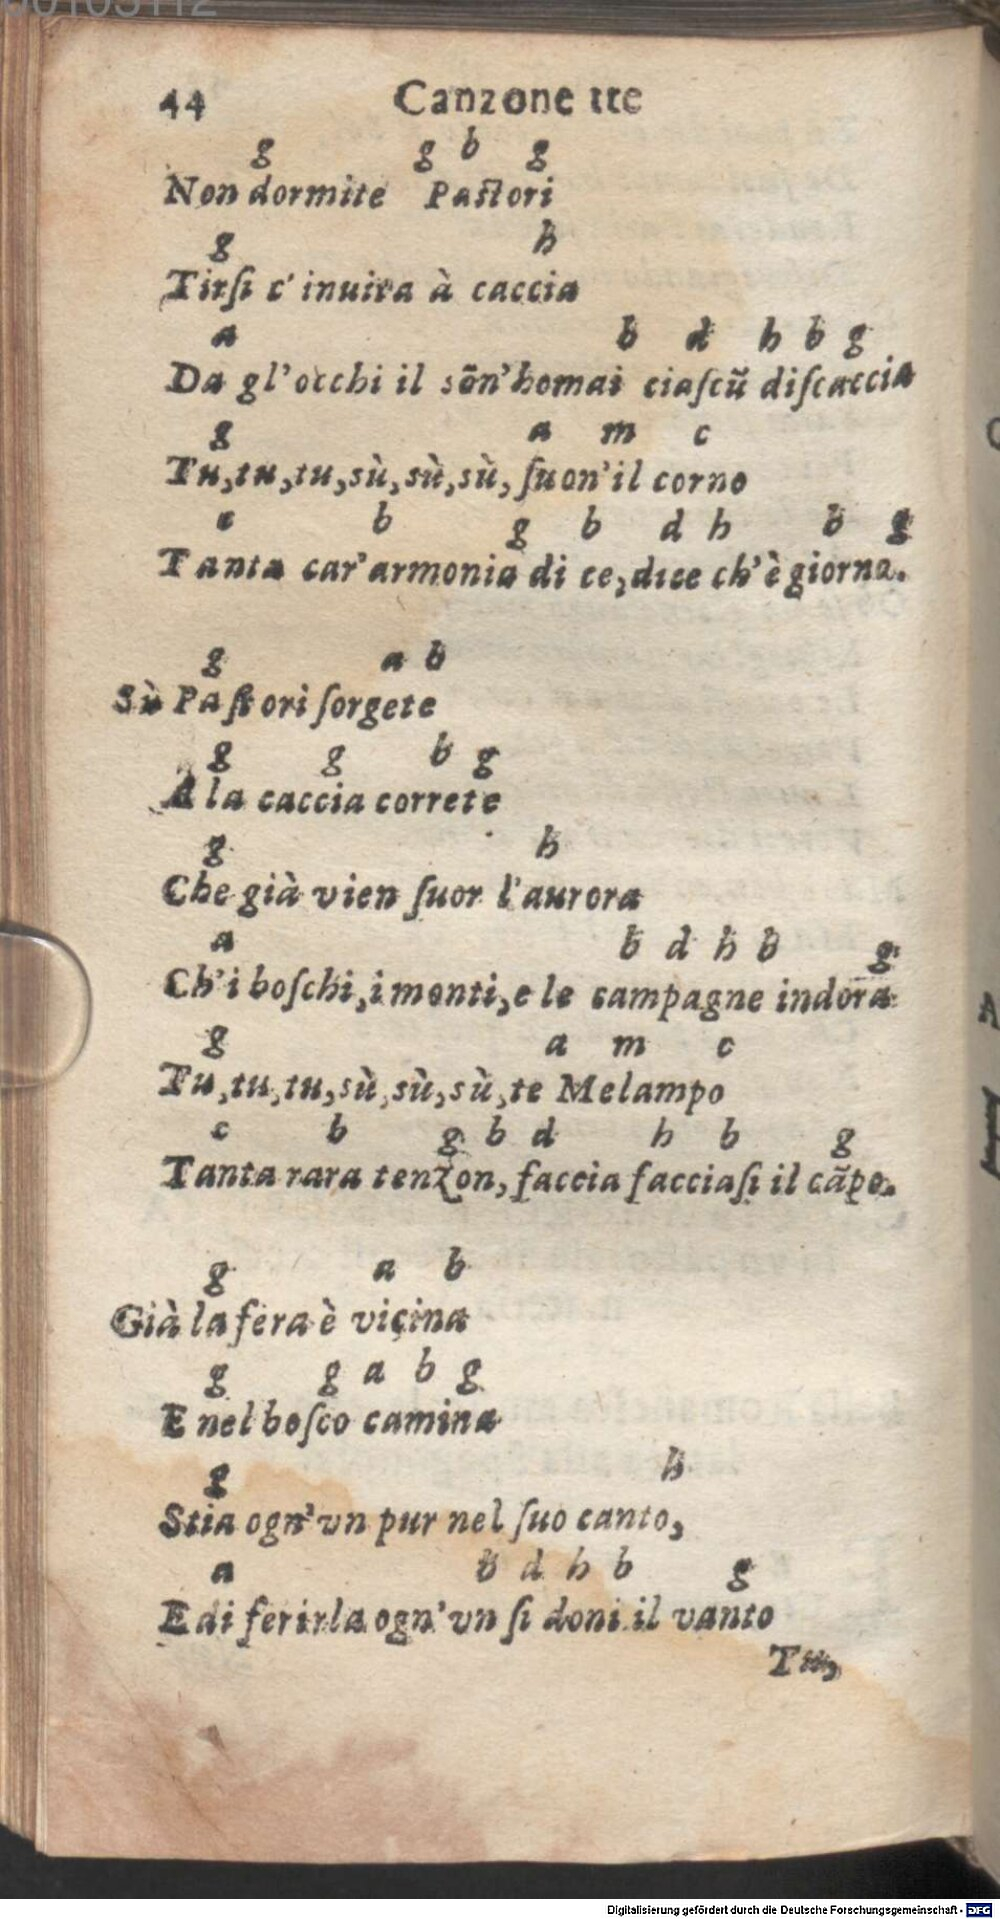 44 Canzone tte
g g b g
Non dormite Paſtori
g h
Tirſi c' inuita à caccia
a b d h b g
Da gl' occhi il sõn' homai ciaſcũ diſcaccia
g a m c
Tu, tu, tu, sù, sù, sù, ſuon' il corno
c b g b d h b g
Tanta car' armonia di ce, dice ch' è giorno.
g a b
Sù Paſtori ſorgete
g g b g
A la caccia correte
g h
Che già vien fuor l' aurora
a b d h b g
Ch' i boſchi, i monti, e le campagne indora
g a m c
Tu, tu, tu, sù, sù, sù, te Melampo
c b g b d h b g
Tanta rara tenzon, faccia facciaſi il cãpo.
g a b
Già la fera è vicina
g g a b g
E nel boſco camina
g h
Stia ogn' vn pur nel ſuo canto,
a b d h b g
E di ferirla ogn' vn ſi doni il vanto
Tu,
Digitalisierung gefördert durch die Deutsche Forschungsgemeinschaft - DFG